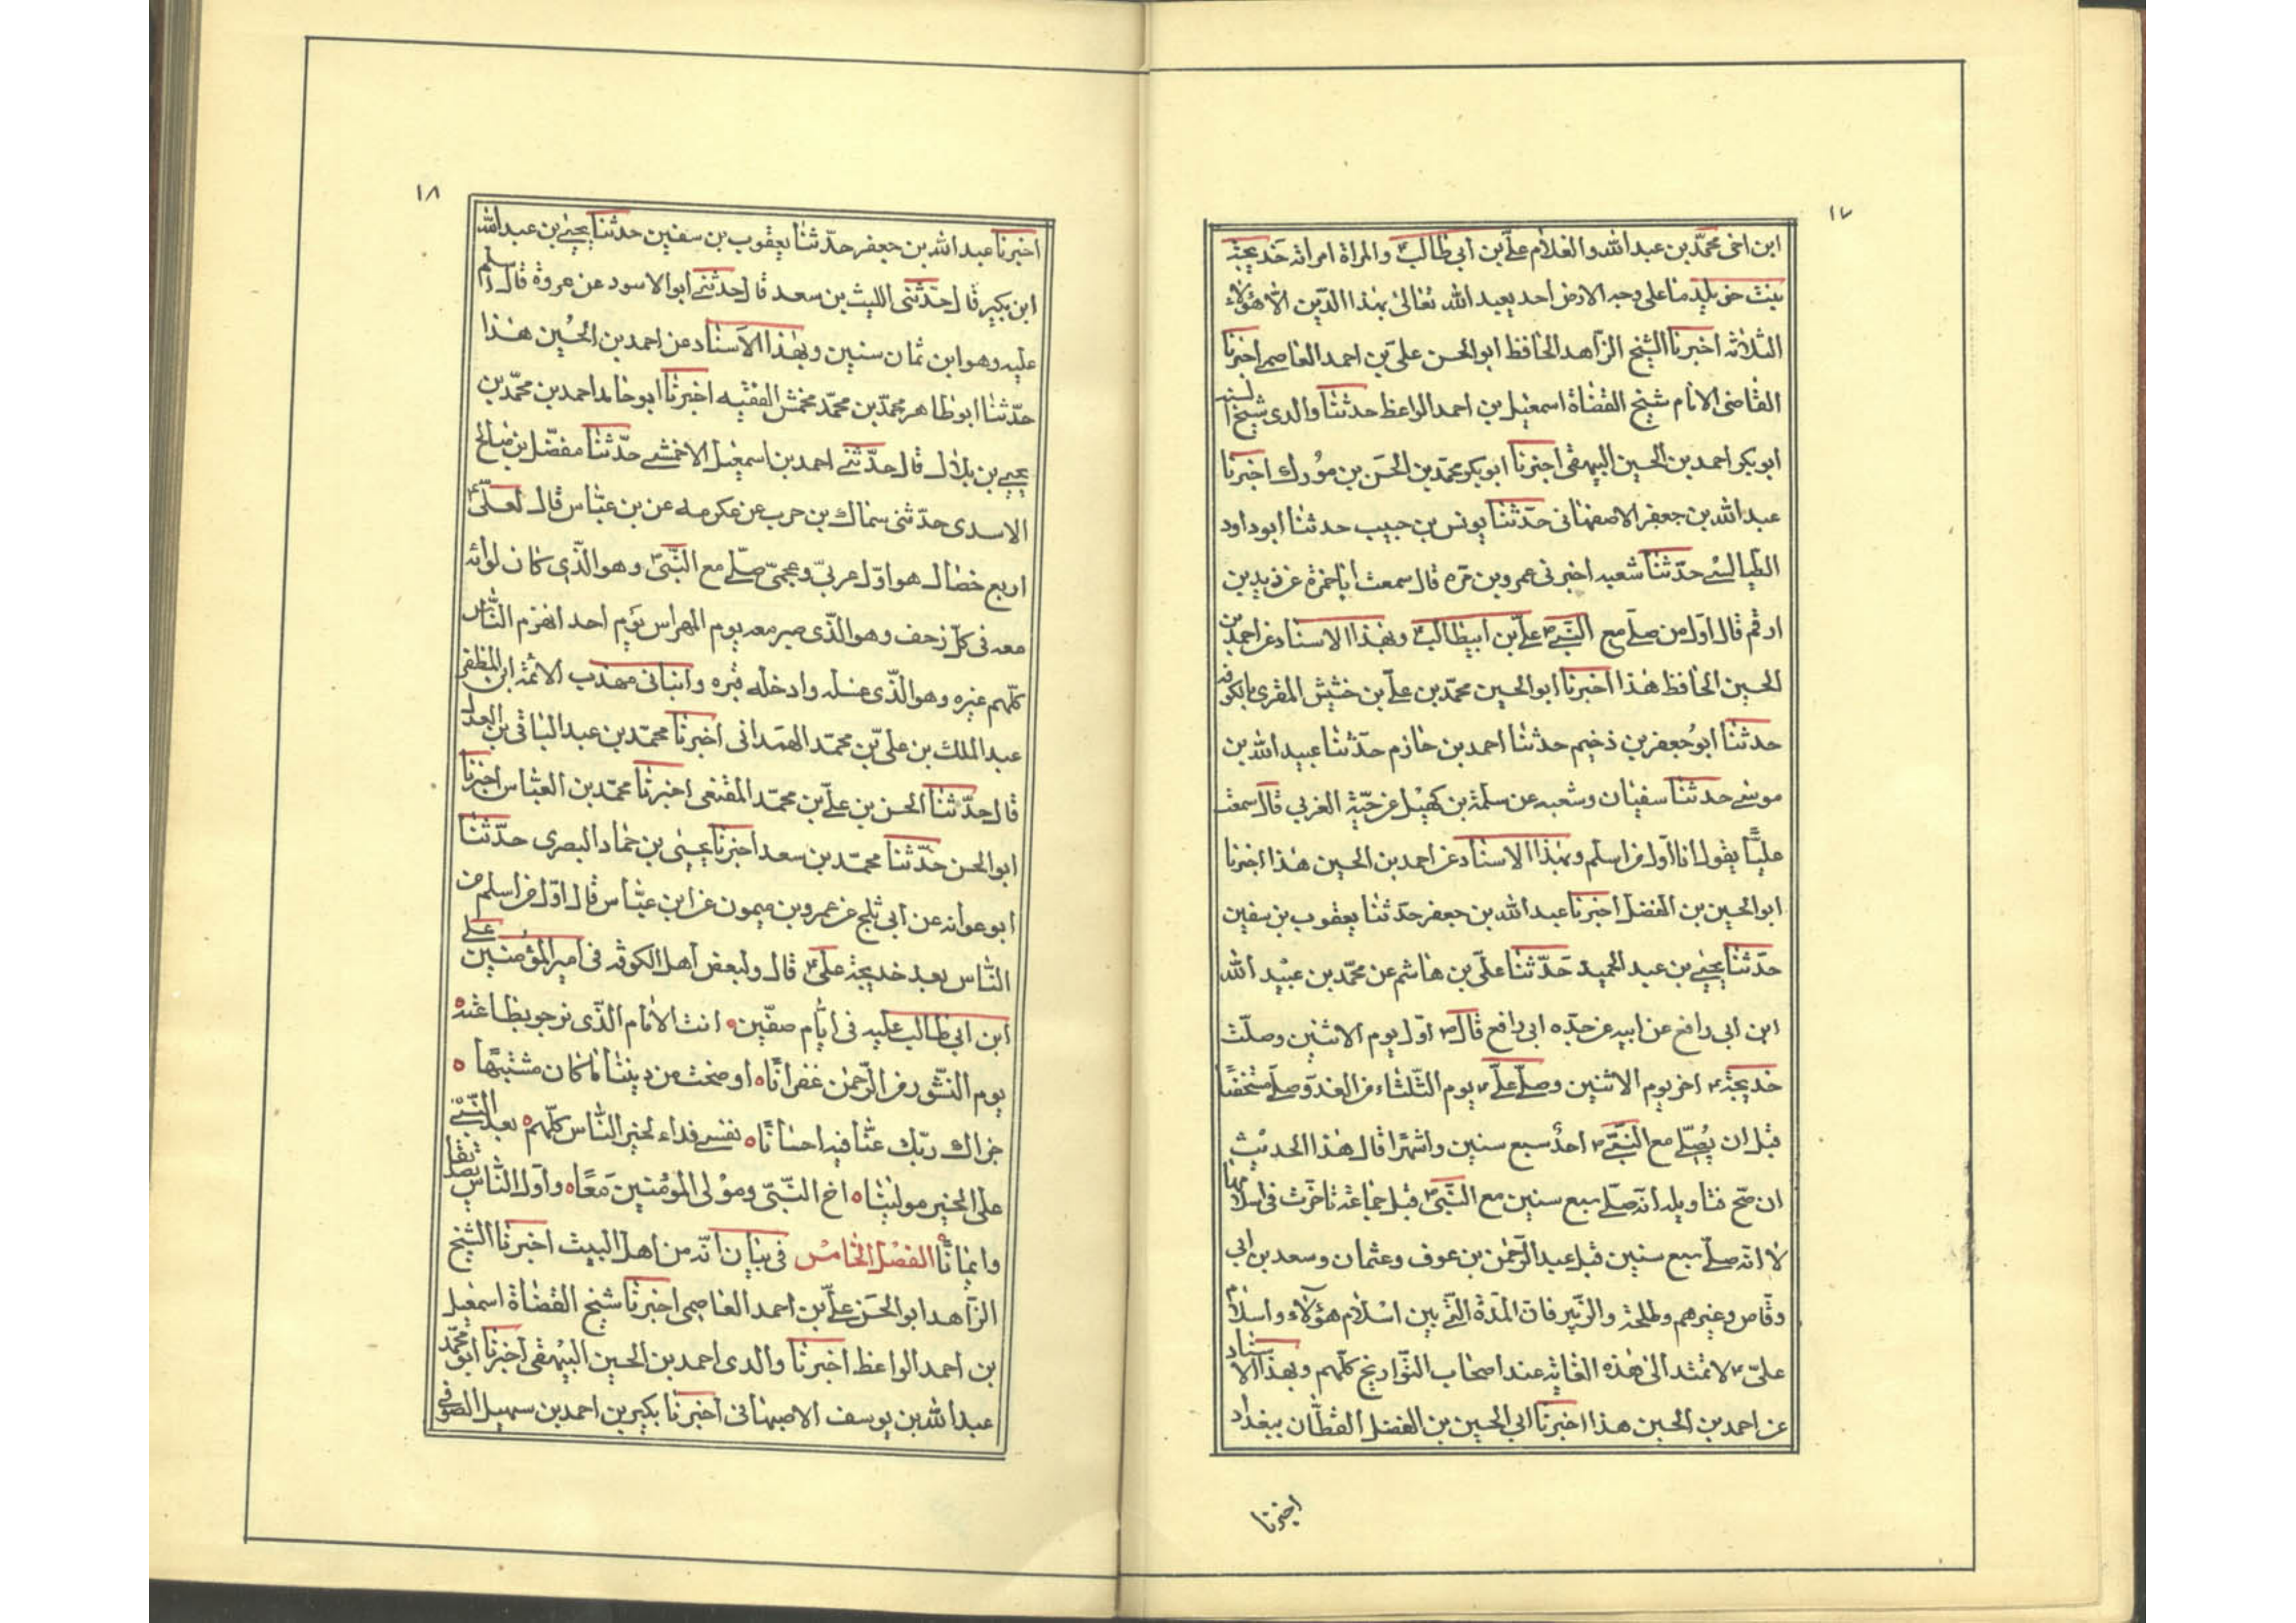 ١٧
ابن اخى محمّد بن عبد الله والغلام علىّ بن ابى طالب ع والمراة امراته خديجة
بنت خويلد ما على وجه الارض احد يعبد الله تعالى بهذا الدّين الا هؤلاء
الثلاثه اخبرنا الشيخ الزّاهد الحافظ ابو الحسن علىّ بن احمد العاصمى اخبرنا
القاضى الامام شيخ القضاة اسمعيل بن احمد الواعظ حدثنا والدى شيخ السنه
ابو بكر احمد بن الحسين البيهقى اخبرنا ابو بكر محمّد بن الحسن بن مورك اخبرنا
عبد الله بن جعفر الاصفهانى حدّثنا يونس بن حبيب حدثنا ابو داود
الطيالسى حدّثنا شعبه اخبرنى عمرو بن مرة قال سمعت ابا حمزة عن زيد بن
ارقم قال اوّل من صلّى مع النّبىّ ص علىّ بن ابيطالب ع وبهذا الاسناد عن احمد بن
الحسين الحافظ هذا اخبرنا ابو الحسين محمّد بن علىّ بن خشيش المقرى بالكوفه
حدثنا ابو جعفر بن دخيم حدثنا احمد بن حازم حدّثنا عبيد الله بن
موسى حدثنا سفيان وشعبه عن سلمة بن كهيل عن حبّة العرنى قال سمعت
عليّا يقول انا اوّل من اسلم وبهذا الاسناد عن احمد بن الحسين هذا اخبرنا
ابو الحسين بن الفضل اخبرنا عبد الله بن جعفر حدّثنا يعقوب بن سفين
حدّثنا يحيى بن عبد الحميد حدّثنا علىّ بن هاشم عن محمّد بن عبيد الله
ابن ابى رافع عن ابيه عن جدّه ابى رافع قال ص اوّل يوم الاثنين وصلّت
خديجة ع اخر يوم الاثنين وصلّى علىّ ع يوم الثّلثاء من الغد وصلّى مستخفيا
قبل ان يُصلّى مع النّبىّ ص احد سبع سنين واشهرا قال هذا الحديث
ان صحّ فتاويله انّه صلّى سبع سنين مع النّبىّ ص قبل جماعة تاخّرت فى اسلامها
لا انّه صلّى سبع سنين قبل عبد الرّحمن بن عوف وعثمان وسعد بن ابى
وقّاص وغيرهم وطلحة والزّبير فانّ المدّة الّتى بين اسلام هؤلاء واسلام
علىّ ع لا تمتد الى هذه الغاية عند اصحاب التّواريخ كلّهم وبهذا الاسناد
عن احمد بن الحسين هذا اخبرنا ابى الحسين بن الفضل القطّان ببغداد
اخبرنا
١٨
اخبرنا عبد الله بن جعفر حدّثنا يعقوب بن سفين حدثنا يحيى بن عبد الله
ابن بكير قال حدّثنى الليث بن سعد قال حدثنى ابو الاسود عن عروة قال اسلم
عليه وهو ابن ثمان سنين وبهذا الاسناد عن احمد بن الحُسين هذا
حدّثنا ابو طاهر محمّد بن محمّد مخمش الفقيه اخبرنا ابو حامد احمد بن محمّد بن
يحيى بن بلال قال حدّثنى احمد بن اسمعيل الاحمسى حدّثنا مفضّل بن صالح
الاسدى حدّثنى سماك بن حرب عن عكرمه عن بن عبّاس قال لعلىّ ع
اربع خصال هو اوّل عربىّ وعجمىّ صلّى مع النّبىّ ص وهو الّذى كان لوائه
معه فى كلّ زحف وهو الّذى صبر معه يوم المهراس يوم احد انهزم النّاس
كلّهم غيره وهو الّذى غسله وادخله قبره وانبانى مهذب الائمّة ابن المظفر
عبد الملك بن علىّ بن محمّد الهمدانى اخبرنا محمّد بن عبد الباقى بن العدل
قال حدّثنا الحسن بن علىّ بن محمّد المقنعى اخبرنا محمّد بن العبّاس اخبرنا
ابو الحسن حدّثنا محمّد بن سعد اخبرنا يحيى بن حماد البصرى حدّثنا
ابو عوانه عن ابى بلج عن عمرو بن ميمون عن ابن عبّاس قال اوّل من اسلم من
النّاس بعد خديجة علىّ ع قال ولبعض اهل الكوفه فى امير المؤمنين على
ابن ابى طالب عليه فى ايّام صفّين ه انت الامام الّذى نرجو بطاعته ه
يوم النشور من الرّحمن غفرانا ه اوضحت من ديننا ما كان مشتبها ه
جزاك ربّك عنّا فيه احسانا ه نفسى فداء لخير النّاس كلّهم ه بعد النّبىّ
على الخير مولينا ه اخ النّبىّ ومولى المؤمنين معًا ه واوّل النّاس تصديقا
وايمانا الفصل الخامس فى بيان انّه من اهل البيت اخبرنا الشيخ
الزّاهد ابو الحسن علىّ بن احمد العاصمى اخبرنا شيخ القضاة اسمعيل
بن احمد الواعظ اخبرنا والدى احمد بن الحسين البيهقى اخبرنا ابو محمّد
عبد الله بن يوسف الاصبهانى اخبرنا بكير بن احمد بن سهيل الصوفى